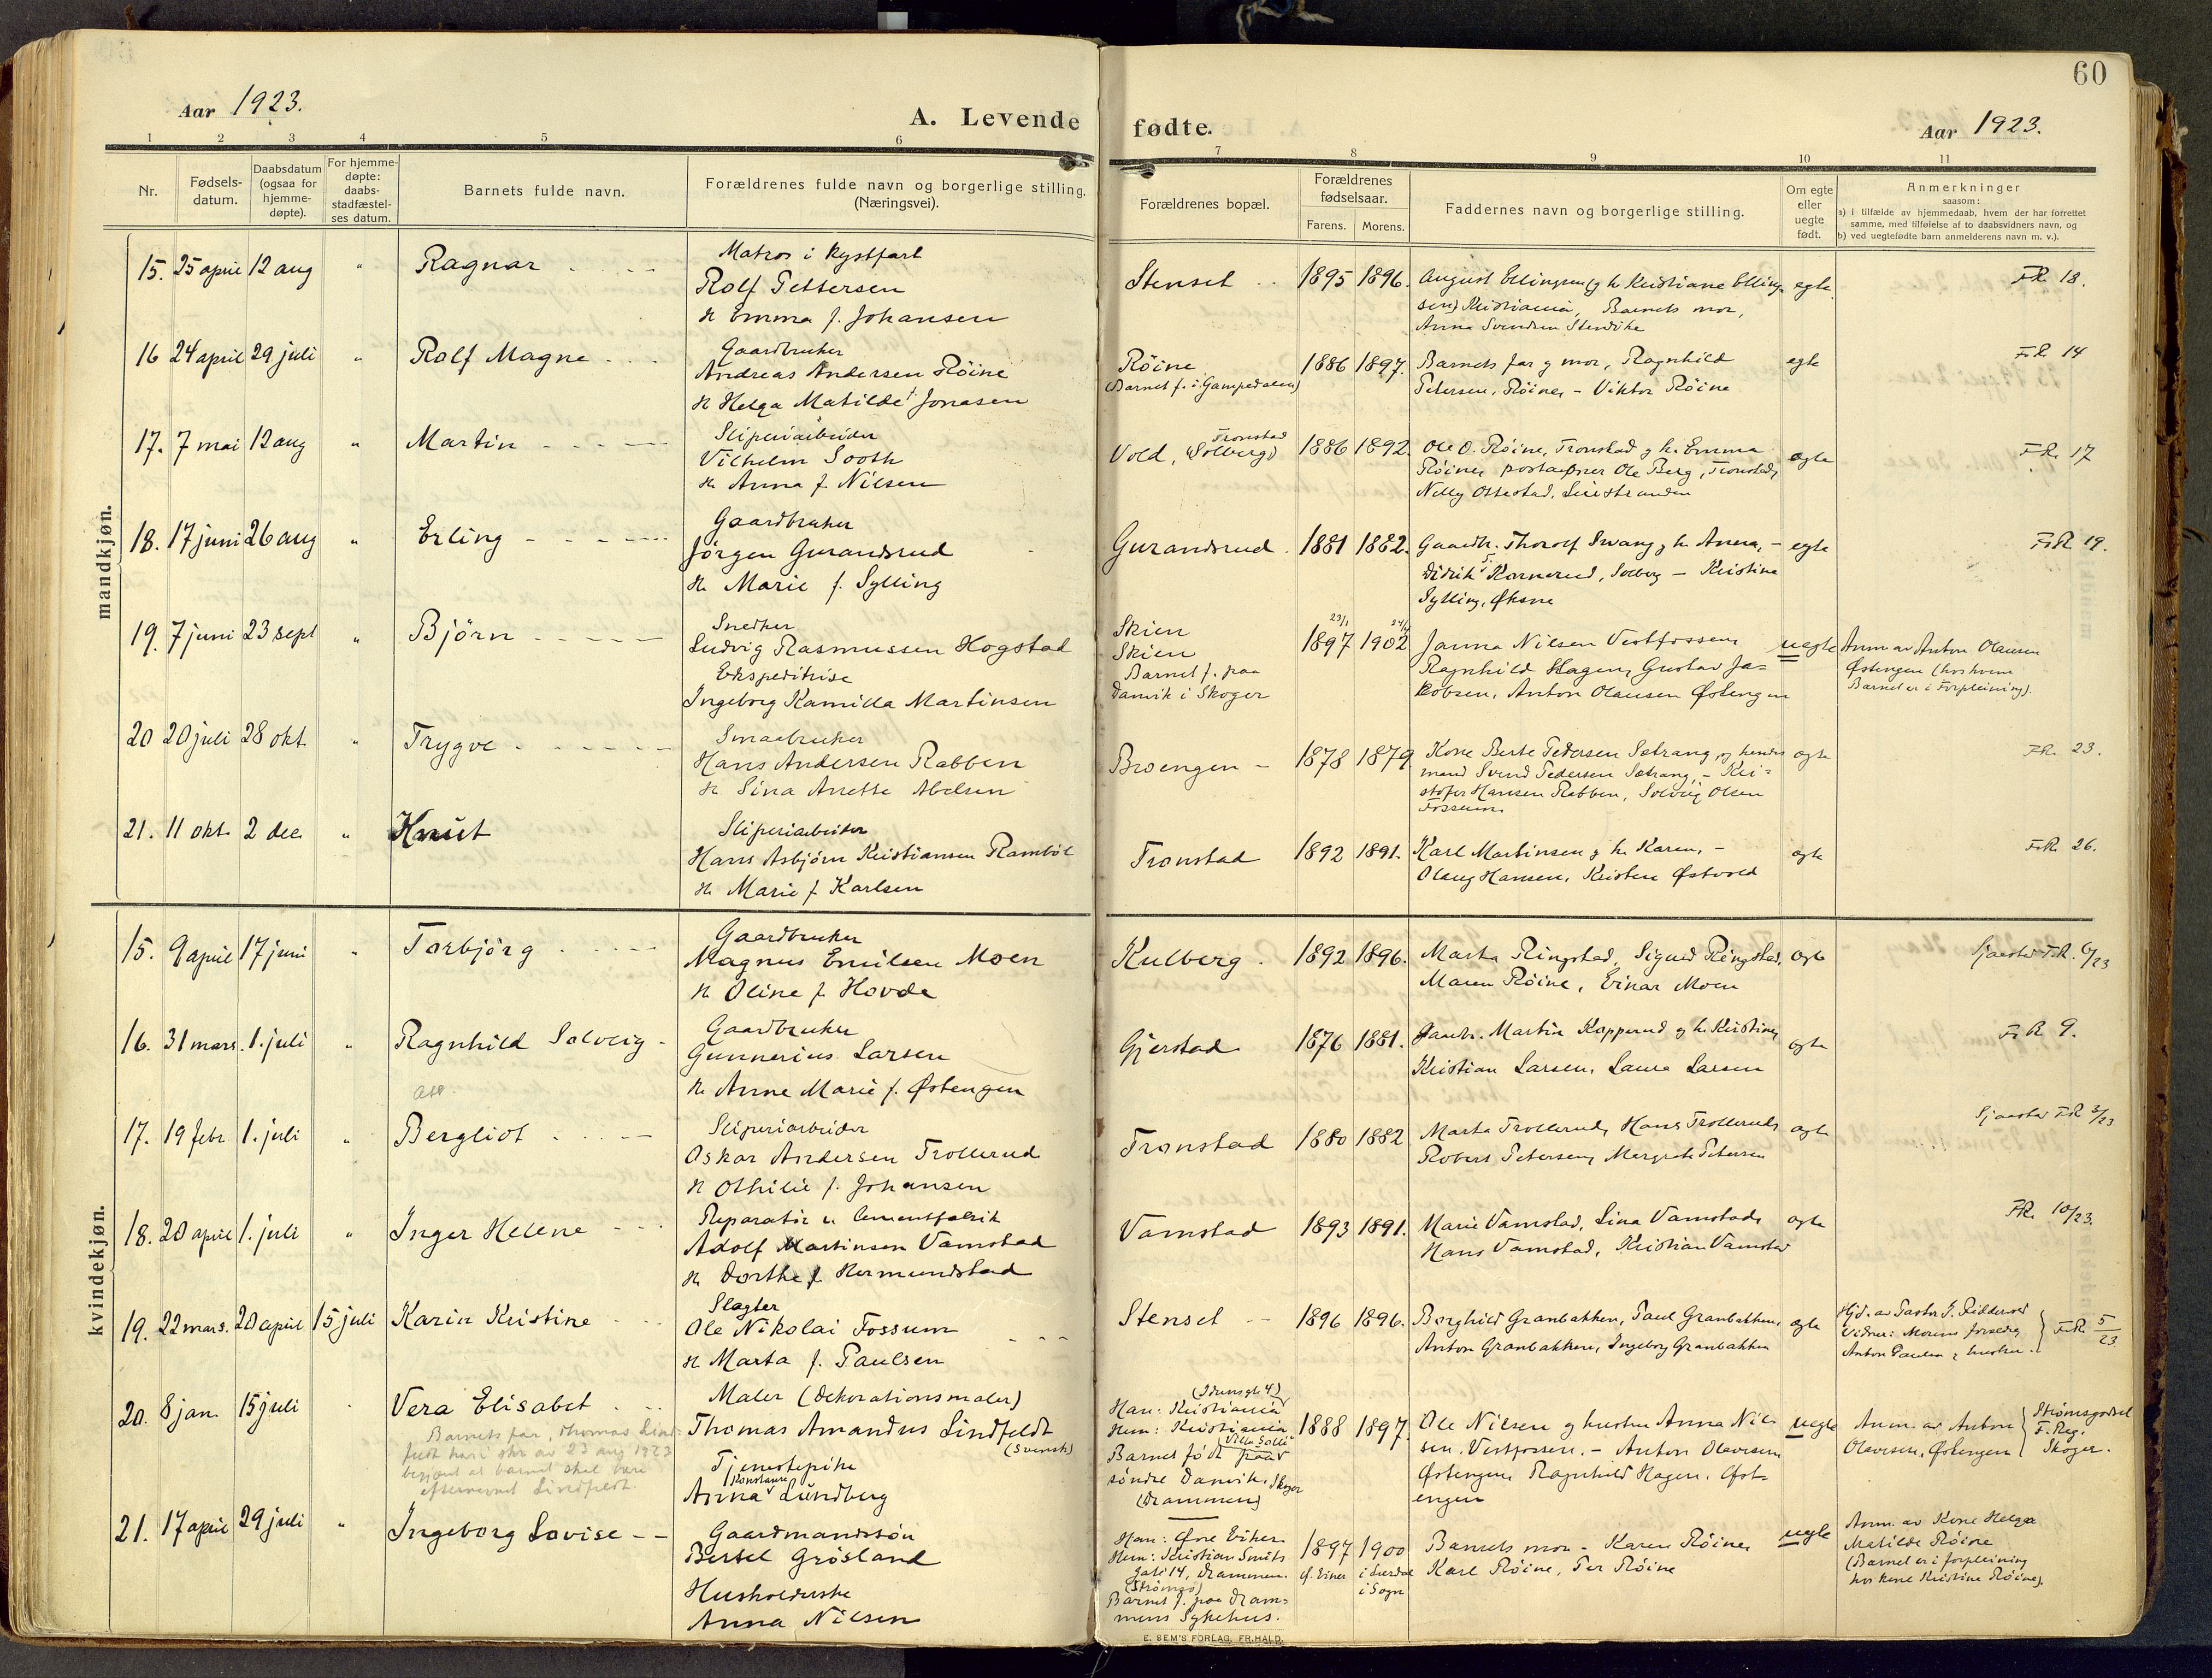 60
Aar 1923.
A. Levende fødte.
Aar 1923.
1 2 3 4 5 6 7 8 9 10 11
Nr.
Fødsels-
datum.
Daabsdatum
(ogsaa for
hjemme-
døpte).
For hjemme-
døpte:
daabs-
stadfæstel-
ses datum.
Barnets fulde navn.
Forældrenes fulde navn og borgerlige stilling.
(Næringsvei).
Forældrenes bopæl.
Forældrenes
fødselsaar.
Farens. Morens.
Faddernes navn og borgerlige stilling.
Om egte
eller
uegte
født.
Anmerkninger
saasom:
a) i tilfælde av hjemmedaab, hvem der har forrettet
samme, med tilføielse av to daabsvidners navn, og
b) ved uegtefødte barn anmelderens navn m. v.).
mandkjøn.
15. 25 april 12 aug " Ragnar
Matros i kystfart
Rolf Pettersen
H Emma f. Johansen
Stenset 1895 1896.
August Ellingsen og h. Kristiane Elling-
sen, Kristiania, Barnets mor,
Anna Svendsen Stensike
egte
FR. 18.
16 24 april 29 juli " Rolf Magne
Gaardbruker
Andreas Andersen Røine
H Helga Matilde f. Jonasen
Røine
(Barnet f. i Gampedalen)
1886 1897.
Barnets far og mor, Ragnhild
Petersen, Røine, – Viktor Røine
egte
FR. 14
17. 7 mai 12 aug " Martin
Sliperiarbeider
Vilhelm Sooth
H. Anna f. Nilsen
Vold, (Solberg) Tronstad
1886 1892.
Ole O. Røine, Tronstad og h. Emma
Røine, postaapner Ole Berg, Tronstad,
Nelly Ottestad,
egte
FR. 17
18. 17 juni 26 aug " Erling
Gaardbruker
Jørgen Gurandsrud
H Marie f. Sylling
Gurandsrud 1881 1882.
Gaardbr. Thorolf Svang og h. Anna, –
Didrik Kornerud, Solberg – Kristine
Sylling, Øksne
egte
FR. 19.
19. 7 juni 23 sept " Bjørn
Snedker
Ludvig Rasmussen Hogstad
Ekspeditrise
Ingeborg Kamilla Martinsen
Skien
Skien
Barnet f. paa
Danvik i Skoger
1897 1902
Janna Nilsen Vestfossen,
Ragnhild Hagen, Gustav Ja-
kobsen, Anton Olausen Østengen
uegte
Anm. av Anton Olausen
Østengen (hos hvem
Barnet er i Forpleining).
20 20 juli 28 okt. " Trygve
Smaabruker
Hans Andersen Rabben
H. Sina Anette Abelsen
Broengen – 1878 1879
Kone Berte Pedersen Sætrang og hendes
mand Svend Pedersen Sætrang, – Kri-
stofer Hansen Rabben, Solveig Olsen
Fossum
egte
FR. 23.
21. 11 okt. 2 dec. " Knut
Sliperiarbeider
Hans Asbjørn Kristiansen Rambøl
H. Marie f Karlsen
Tronstad 1892 1891.
Karl Martinsen og h. Karen, –
Olaug Hansen, Kristen Østvold
egte
FR. 26.
kvindekjøn.
15. 9 april 17 juni " Torbjørg
Gaardbruker
Magnus Emilsen Moen
H Oline f. Hovde
Kulberg. 1892 1896.
Marta Ringstad, Sigurd Ringstad,
Maren Røine, Einar Moen
egte
Sjaastad FR. 6/23
16. 31 mars. 1. juli " Ragnhild Solveig
Gaardbruker
Gunnerius Larsen
H. Anne Marie f. Østengen
Gjerstad 1876 1881.
Gaardbr. Martin Kopperud og h. Kristine,
Kristian Larsen, Laura Larsen
egte
FR 9.
17. 19 febr 1. juli " Bergliot
Sliperiarbeider
Oskar Andersen Trollerud
H Othilie f. Johansen
Tronstad 1880 1882
Marta Trollerud, Hans Trollerud,
Robert Petersen, Margrete Petersen
egte
Sjaastad FR 3/23
18. 20 april 1. juli " Inger Helene
Reparatør v. Cementfabrik
Adolf Martinsen Vamstad
H Dorthe f Hermundstad
Vamstad 1893 1891.
Marie Vamstad, Lina Vamstad,
Hans Vamstad, Kristian Vamstad
egte
FR. 10/23.
19. 22 mars. 20 april 15 juli Karin Kristine
Slagter
Ole Nikolai Fossum
H Marta f. Paulsen
Stenset 1896 1896.
Borghild Granbakken, Paul Granbakken,
Anton Granbakken, Ingeborg Granbakken
egte
Hjd. av Pastor J. Riddervold
Vidner: Morens forældre
Anton Paulsen og hustru.
FR. 5/23
20. 8 jan. 15 juli Vera Elisabet
Barnets far, Thomas Lind-
feldt har i skr. av 23 aug 1923
begjært at barnet skal bære
efternavnet Lindfeldt.
Maler (Dekorationsmaler)
Thomas Amandus Lindfeldt
(Svensk)
Tjenestepike
Anna Konstanse Lundberg
(Idunsgt 4)
Han: Kristiania
Hun: Kristiania
Barnet født paa Villa Solli
søndre Danvik, Skoger
(Drammen)
1888 1897.
Ole Nilsen og hustru Anna Nil-
sen, Vestfossen. – Anton Olavesen
Østengen, Ragnhild Hagen, Øst-
engen
uegte
Anm. av Anton
Olavesen, Østengen
Strømsgodset
F. Reg.
Skoger.
21. 17 april 29 juli " Ingeborg Lovise
Gaardmandssøn
Bertel Grøsland
Husholderske
Anna Nilsen
Han: Øvre Eiker
Hun: Kristian Smits
gate 14, Drammen.
(Strømsø)
Barnet f. paa Dram-
mens Sykehus.
1897 1900
Ø. Eiker i Lærdal
i Sogn
Barnets mor – Karen Røine,
Karl Røine, Per Røine
uegte
Anm. av Kone Helga
Matilde Røine
(Barnet er i forpleining
hos kone Kristine Røine).
E. SEM'S FORLAG, FR.HALD.